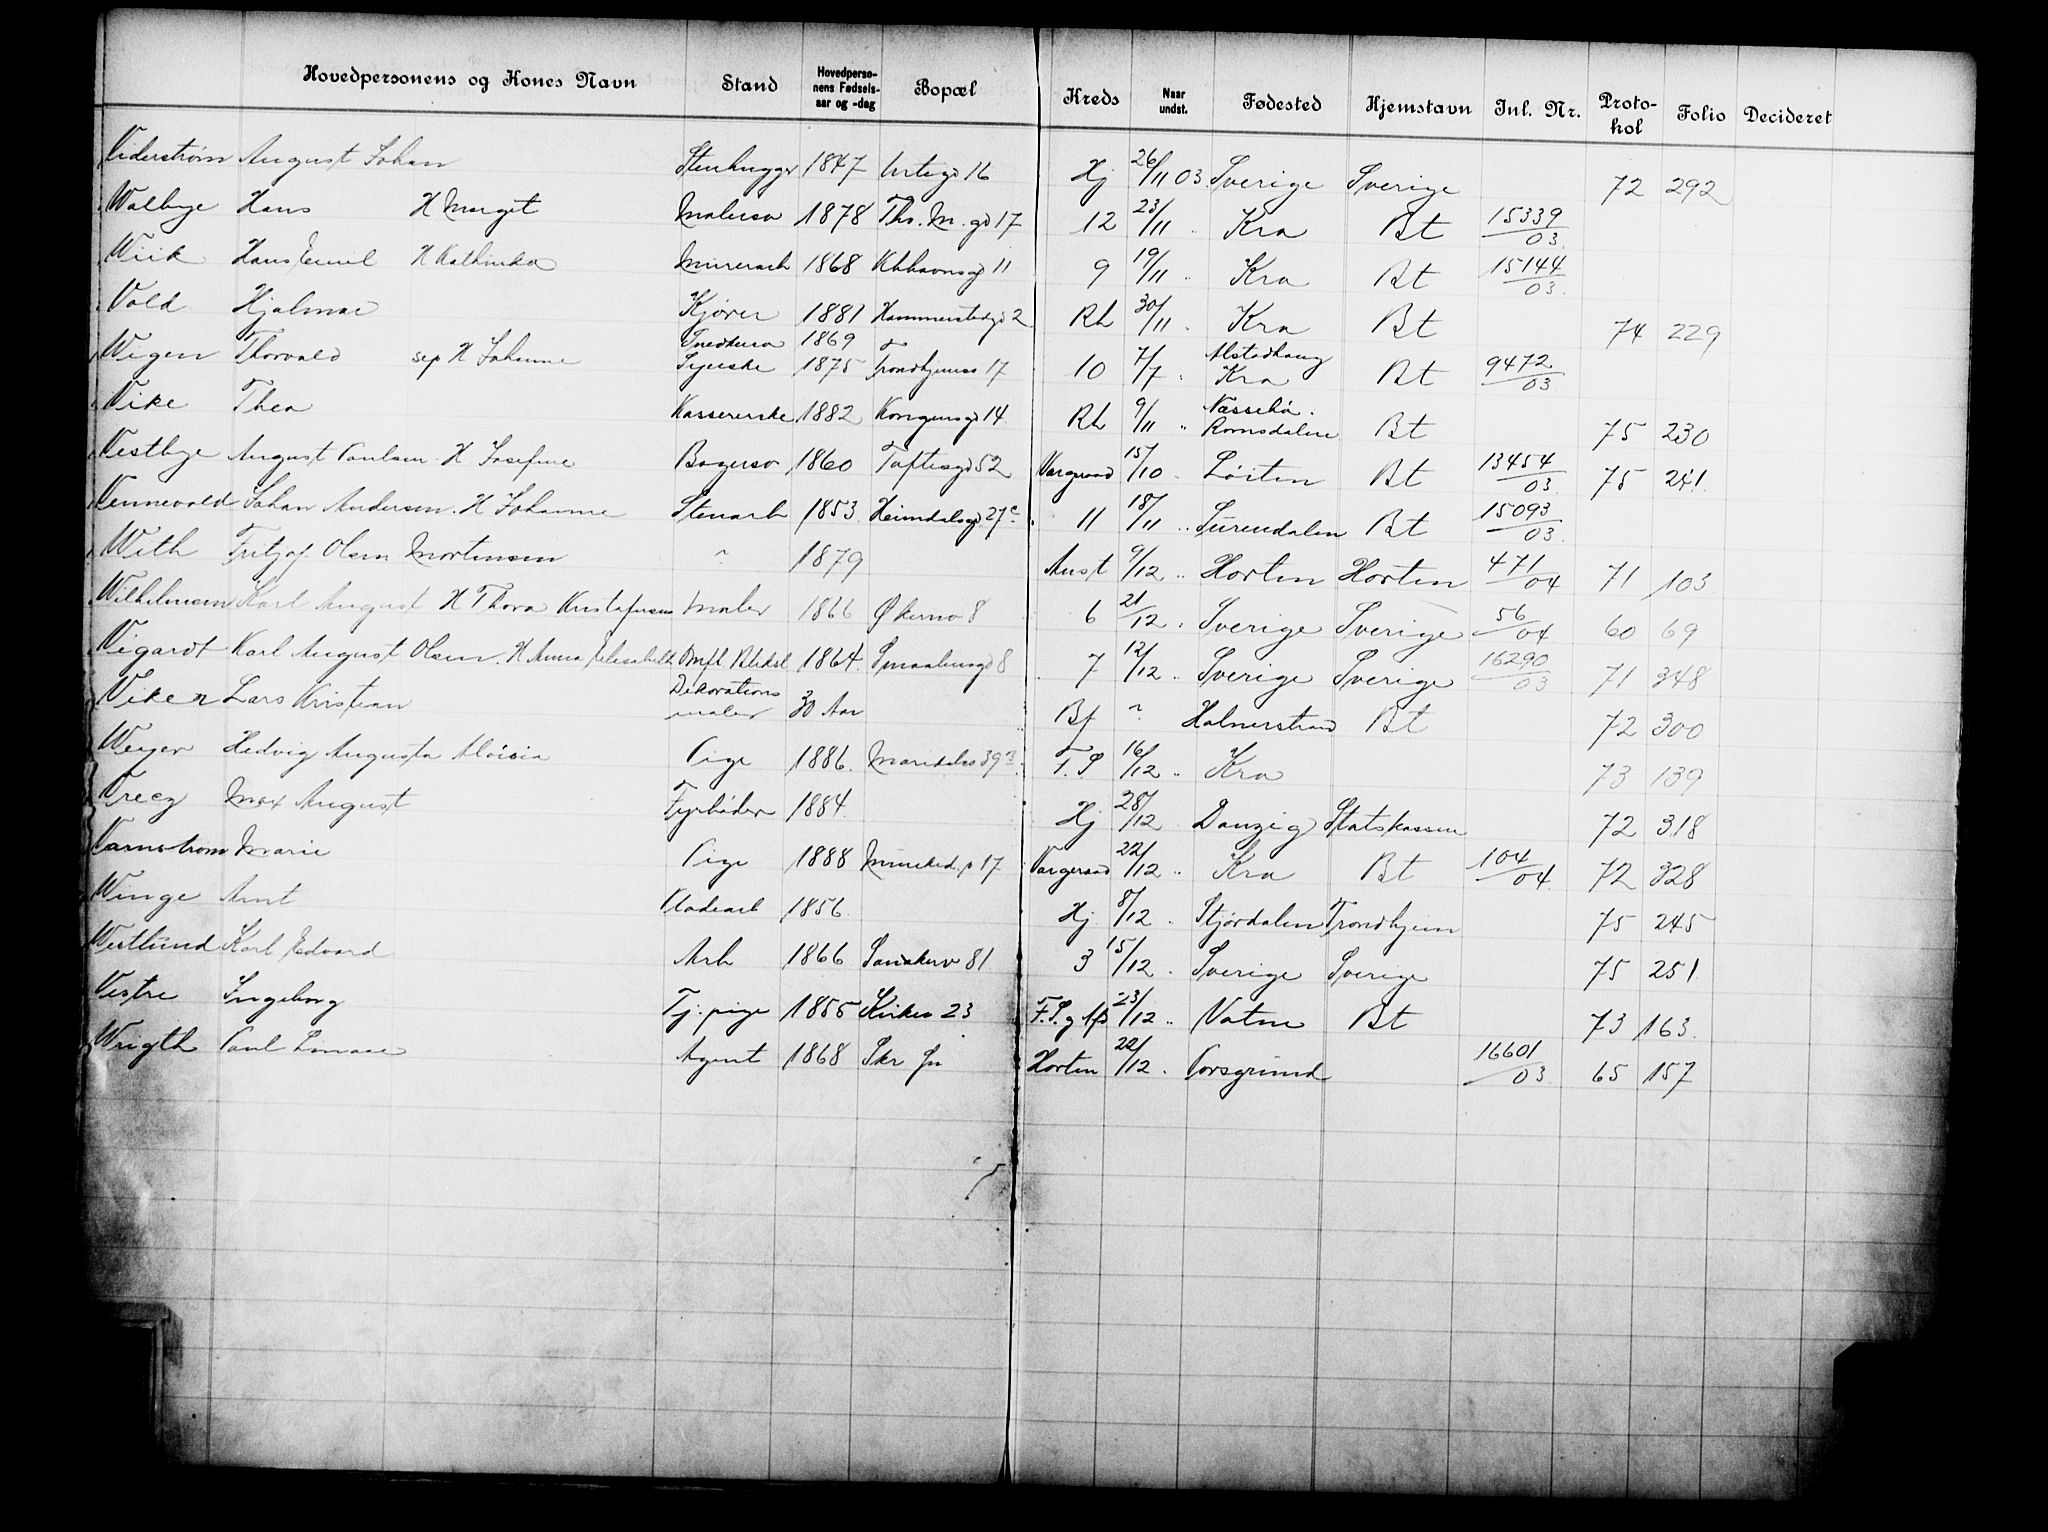 Hovedpersonens og Kones Navn Stand Hovedpersonens Fødselsaar og -dag Bopæl Kreds Naar undst. Fødested Hjemstavn Inl. Nr. Protokol Folio Decideret
Viderstrøm August Johan Stenhugger 1847 Urtegd 16 Hj 26/11 03 Sverige Sverige 72 292
Walbye Hans H Marget Malersv 1878 Ths. M. gd 17 12 23/11 " Kra Bt 15339/03
Wiik Hans Emil H Kathinka Murerarb 1868 Kbhavnsgd 11 9 19/11 " Kra Bt 15144/03
Vold Hjalmar Kjører 1881 Hammerstedgd 2 Rh 30/11 " Kra Bt 74 229
Snedkersv 1869 Alstadhaug
Wigen Thorvald sep H Johanne Syerske 1875 Trondhjemsv 17 10 7/7 " Kra Bt 9472/03
Vike Thea Kassererske 1882 Kongensgd 14 Rh 9/11 " Næssebø. Romsdalen Bt 75 230
Vestbye August Paulsen H Josefine Bagersv 1860 Toftesgd 52 Vargeraad 15/10 " Løiten Bt 13454/03 75 241
Vennevold Johan Andersen. H Johanne Stenarb 1853 Heimdalsgd 27c 11 18/11 " Surendalen Bt 15093/03
With Fritjof Olsen Mortensen " 1879 Anst 9/12 " Horten Horten 471/04 71 103
Wilhelmsen Karl August H Thora Kristafersen Maler 1866 Økernv 8 6 21/12 " Sverige Sverige 56/04 60 69
Vigardt Karl August Olsen. H Anna Elisabeth Omfl. Bliksl 1864 Smaalensgd 8 7 12/12 " Sverige Sverige 16290/03 71 348
Viker Lars Kristian Dekorationsmaler 30 Aar Bf " Holmestrand Bt 72 300
Weyer Hedvig Augusta Aloisia Pige 1886 Maridalsv 39 F. S 16/12 " Kra 73 139
Vrecz Max August Fyrbøder 1884 Hj 28/12 Danzig Statskassen 72 318
Varnstrøm Marie Pige 1888 Munked. p 17 Vargeraad 22/12 " Kra Bt 104/04 72 328
Winge Arnt Pladearb 1856 Hj 8/12 " Stjørdalen Trondhjem 75 245
Westlund Karl Edvard Arb 1866 Sanakerv 81 3 15/12 " Sverige Sverige 75 251
Vestre Ingeborg Tj. pige 1855 Kirkev 23 F. S. g 23/12 " Vatne Bt 73 163
Wrigth Paul Agent 1868 Skr Horten 22/12 " Porsgrund 16601/03 65 157